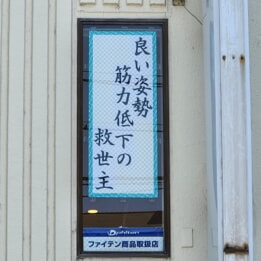 良い姿勢
筋力低下の
救世主
Phiten
ファイテン商品取扱店